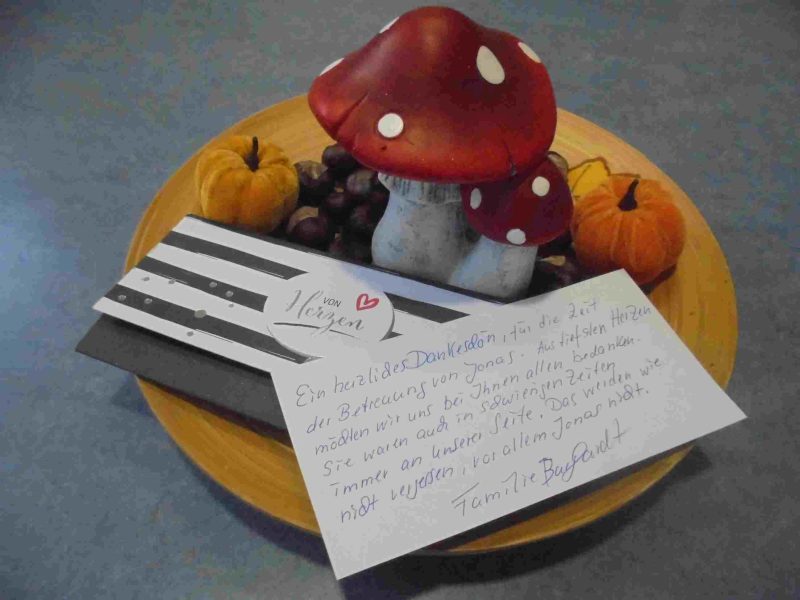 VON
Herzen
Ein herzliches Dankesön, für die Zeit
der Betreuung von Jonas. Aus tiefsten Herzen
möchten wir uns bei Ihnen allen bedanken.
Sie waren auch in schwierigen Zeiten
immer an unserer Seite. Das werden wir
nicht vergessen, vor allem Jonas nicht.
Familie